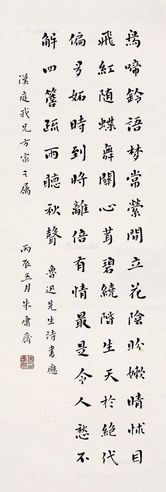 鳥啼鈴語夢常縈閒立花陰盼嫩晴怵目
飛紅随蝶舞關心茸碧繞階生天於絕代
偏多妬時到將離倍有情最是令人愁不
解四簷疏雨聽秋聲
魯迅先生詩書應
漢庭我兄方家之屬
丙辰五月朱嘯齋